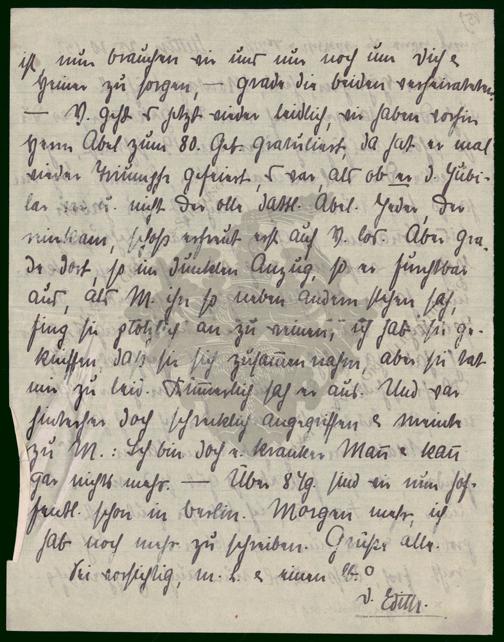 ist, nun brauchen wir uns nur noch um Dich &
Heiner zu sorgen, — grade die beiden verheirateten.
— V. geht es jetzt wieder leidlich, wir haben vorhin
Herrn Abel zum 80. Geb. gratuliert, da hat er mal
wieder Triumphe gefeiert, es war, als ob er d. Jubi-
lar u. nicht der olle Abel. Jeder, der
reinkam, schoß erfreut erst auf V. los. Aber gra-
de dort, so im dunklen Anzug, sah er furchtbar
aus, als M. ihn so neben andern stehen sah,
fing sie plötzlich an zu weinen, ich hab sie ge-
kniffen, daß sie sich zusammennahm, aber sie tat
mir zu leid. Kümmerlich sah er aus. Und war
hinterher doch schrecklich angegriffen & meinte
zu M.: Ich bin doch e. kranker Mann & kann
gar nichts mehr. — Über 8 Tg. sind wir nun hof-
fentl. schon in Berlin. Morgen mehr, ich
hab noch mehr zu schreiben. Grüße alle.
Sei vorsichtig, m. L. & einen
D. Edith.